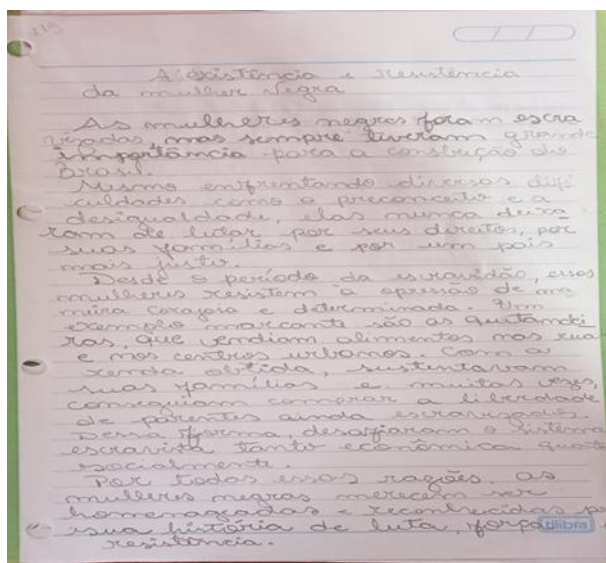 219
A existência e resistência
da mulher negra
As mulheres negras foram escra
vizadas, mas sempre tiveram grande
importância para a construção do
Brasil.
Mesmo enfrentando diversas difi
culdades como o preconceito e a
desigualdade, elas nunca deixa
ram de lutar por seus direitos, por
suas famílias e por um país
mais justo.
Desde o período da escravidão, essas
mulheres resistem à opressão de ma
neira corajosa e determinada. Um
exemplo marcante são as quitandei
ras, que vendiam alimentos nas rua
e nos centros urbanos. Com a
renda obtida, sustentavam
suas famílias e muitas vezes,
conseguiam comprar a liberdade
de parentes ainda escravizados.
Dessa forma, desafiaram o sistema
escravista tanto econômica quanto
socialmente.
Por todas essas razões, as
mulheres negras merecem ser
homenageadas e reconhecidas po
sua história de luta, força
resistência.
tilibra